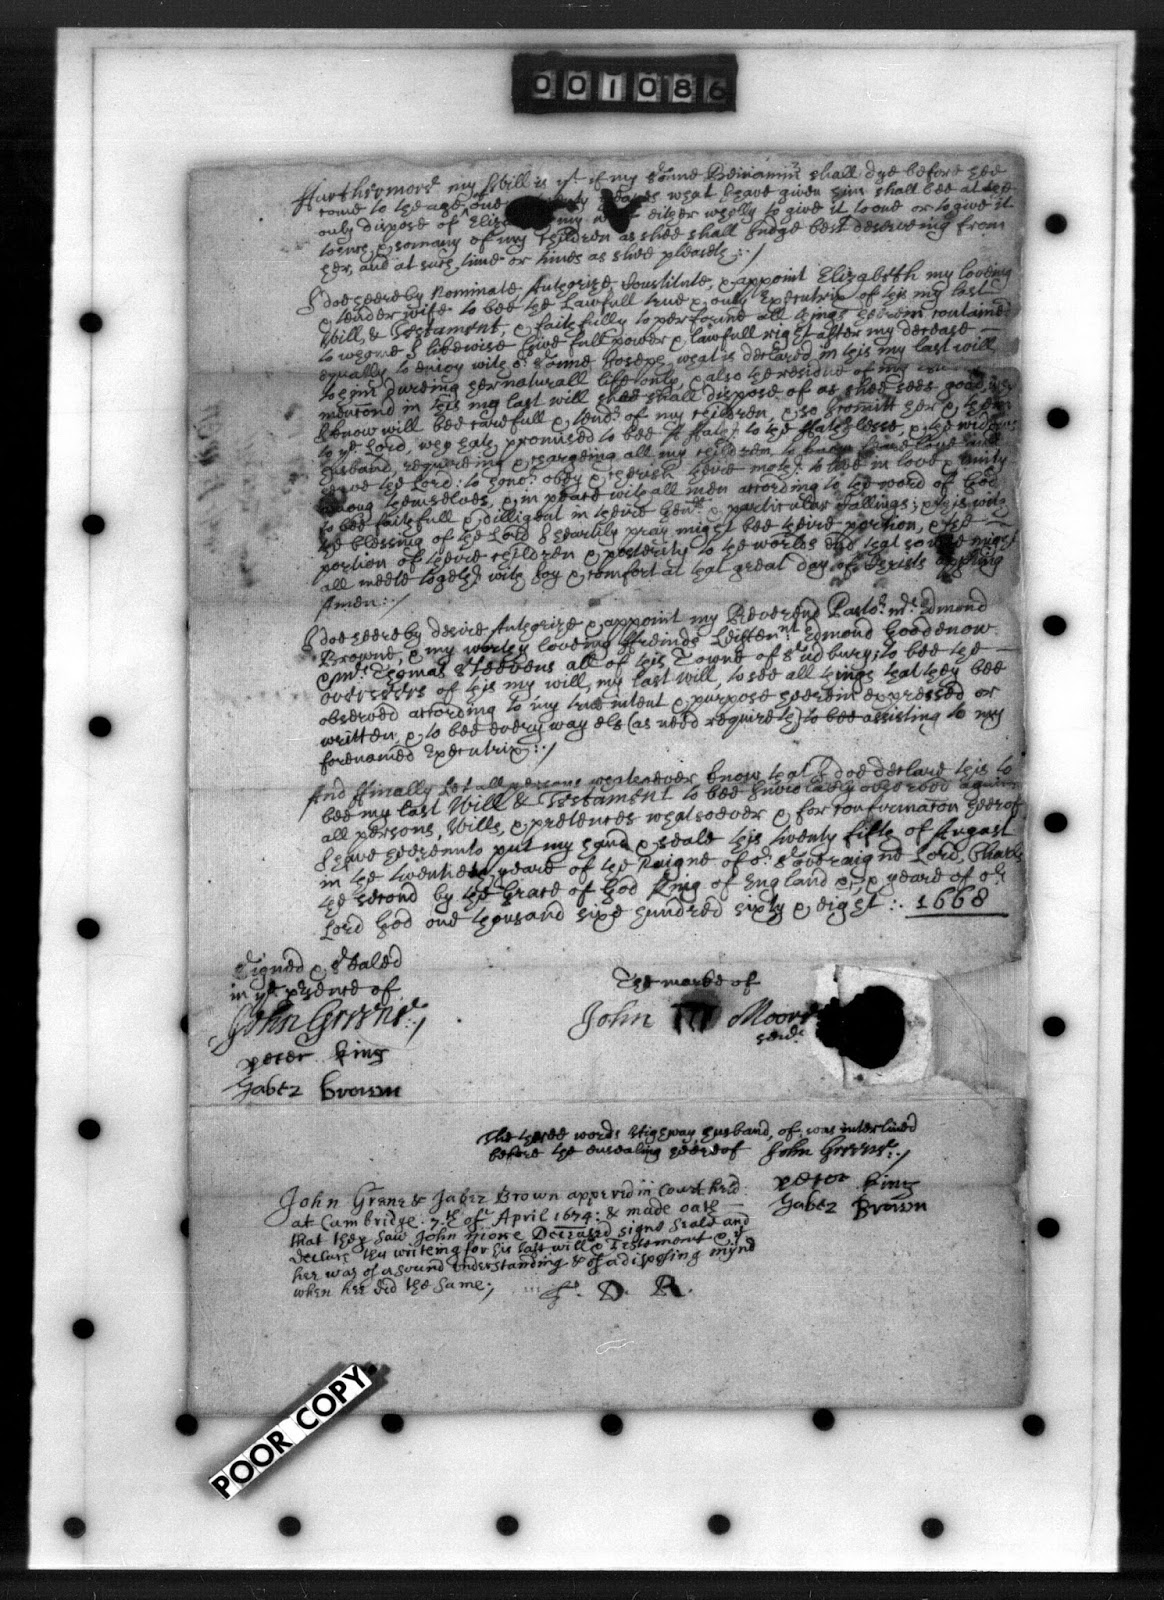 001086
Furthermore my Will is yt. if my Sonne Beniamin shall dye before hee
come to the age one yeares what I have given him shall bee at hee
only dispose of my either wholly to give it to one or to give it
to such, & so many of my Children as shee shall Judge best deserveing from
her, and at such time or times as shee pleaseth :./
I doe heereby Nominate Authorize Constitute, & appoint Elizabeth my loveing
& tender wife to bee the Lawfull true & only Executrix of this my last
Will, & Testament, & faithfully to performe all things heerein contained
to whome I likewise Give full power & lawfull right after my decease
equally to enjoy with or. Sonne Joseph, what is declared in this my last will
to him dureing her naturall life only, & also the residue of my
mentond in this my last will shee shall dispose of as shee sees good,
I know will bee carefull & tendr. of my children, & so Comitt her & them
to ye Lord, who hath promised to bee A Fathr. to the Fatherlesse, & the widows
husband, requireing & chargeing all my children to
serve the Lord: to honor. obey & cherish theire mothr: to live in love & unity
among themselves, & in peace with all men according to the word of God
to bee faithfull & dilligent in theire Genrll & particular Callings; & this with
the blessing of the Lord I heartily pray might bee theire portion, & the
portion of theire children & posterity to the worlds End that so wee might
all meete togethr. with Joy & Comfort at that great day of Christs appearing
Amen :./
I doe heereby desire Authorize & appoint my Reverend Pastor. mr. Edmond
Browne, & my worthy loveing Freinds Leiftennt. Edmond Goodenow
& mr. Thomas Steevens all of this Towne of Sudbury; to bee the
overseers of this my will, my last will, to see all things that they bee
observed according to my true intent & purpose heerein expressed or
written, & to bee every way els (as need requireth) to bee assisting to my
forenamed Executrix :./
And Finally Let all persons whatsoever know, that I doe declare this to
bee my last Will & Testament to bee Inviolably observed against
all persons, Wills, & pretences whatsoever & for confirmation heereof
I have heereunto put my hand & seale this twenty fifte of August
in the twentieth yeare of the Raigne of or. Soveraigne Lord, Charls
the second by the Grace of God King of England &c, & yeare of or.
Lord God one thousand sixe hundred sixty & eight :. 1668
Signed & Sealed
in ye presence of
John Greene ./
Peter King
Jabez Brown
The marke of
John M Moore
senr.
The three words Highway, husband, of, was interlined
before the ensealing heereof John Greene ./
Peter King
Jabez Brown
John Grene & Jabez Brown appered in Court held
at Cambridge. 7th. of April 1674: & made oath
that they saw John More Deceased signe seale and
declare this writeing for his last will & Testament & yt
hee was of a sound understanding & of a disposing mynd
when hee did the same;
T. D. R.
POOR COPY